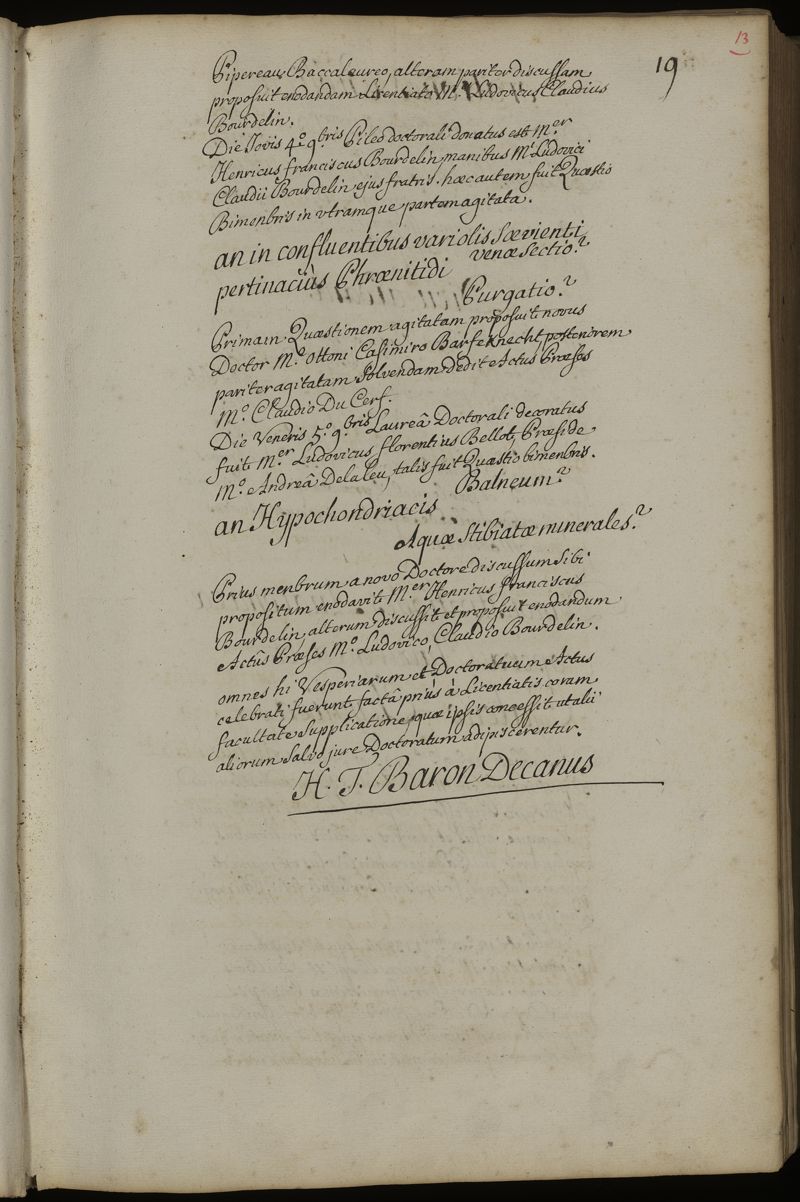 13
19
Pipereau Baccalaureo, alteram pariter discussam
proposuit enodandam Licentiato M.º Ludovicus Claudius
Bourdelin.
Die Jovis 4º 9bris Pileo doctorali donatus est M.er
Henricus franciscus Bourdelin, manibus M.i Ludovici
Claudii Bourdelin ejus fratris. hæc autem fuit Quæstio
Bimenbris in utramque partem agitata.
an in confluentibus variolis Sævienti
pertinaciùs Phrænitidi venæ Sectio?
Purgatio?
Primam Quæstionem agitatam proposuit novus
Doctor M.º Ottoni Casimiro Barfeknecht, posteriorem
pariter agitatam Solvendam dedit Actus Præses
M.º Claudio Du Cerf.
Die Veneris 5.º 9.bris Laureâ Doctorali decoratus
fuit M.er Ludovicus florentius Bellot, Præside
M.º Andreâ Delaleu, talis fuit Quæstio bimenbris.
an Hypochondriacis Balneum?
Aquæ Stibiatæ minerales?
Prius menbrum a novo Doctore discussum Sibi
propositum enodavit M.er Henricus franciscus
Bourdelin, alterum discussit et proposuit enodandum
Actûs Præses M.º Ludovico, Claudio Bourdelin.
omnes hi Vesperiarum et Doctoratuum Actus
celebrati fuerunt factâ priùs à Licentiatis coram
facultate Supplicatione, quæ ipsis concessit ut alii
aliorum Salvo jure Doctoratum adipiscerentur.
H. T. Baron Decanus